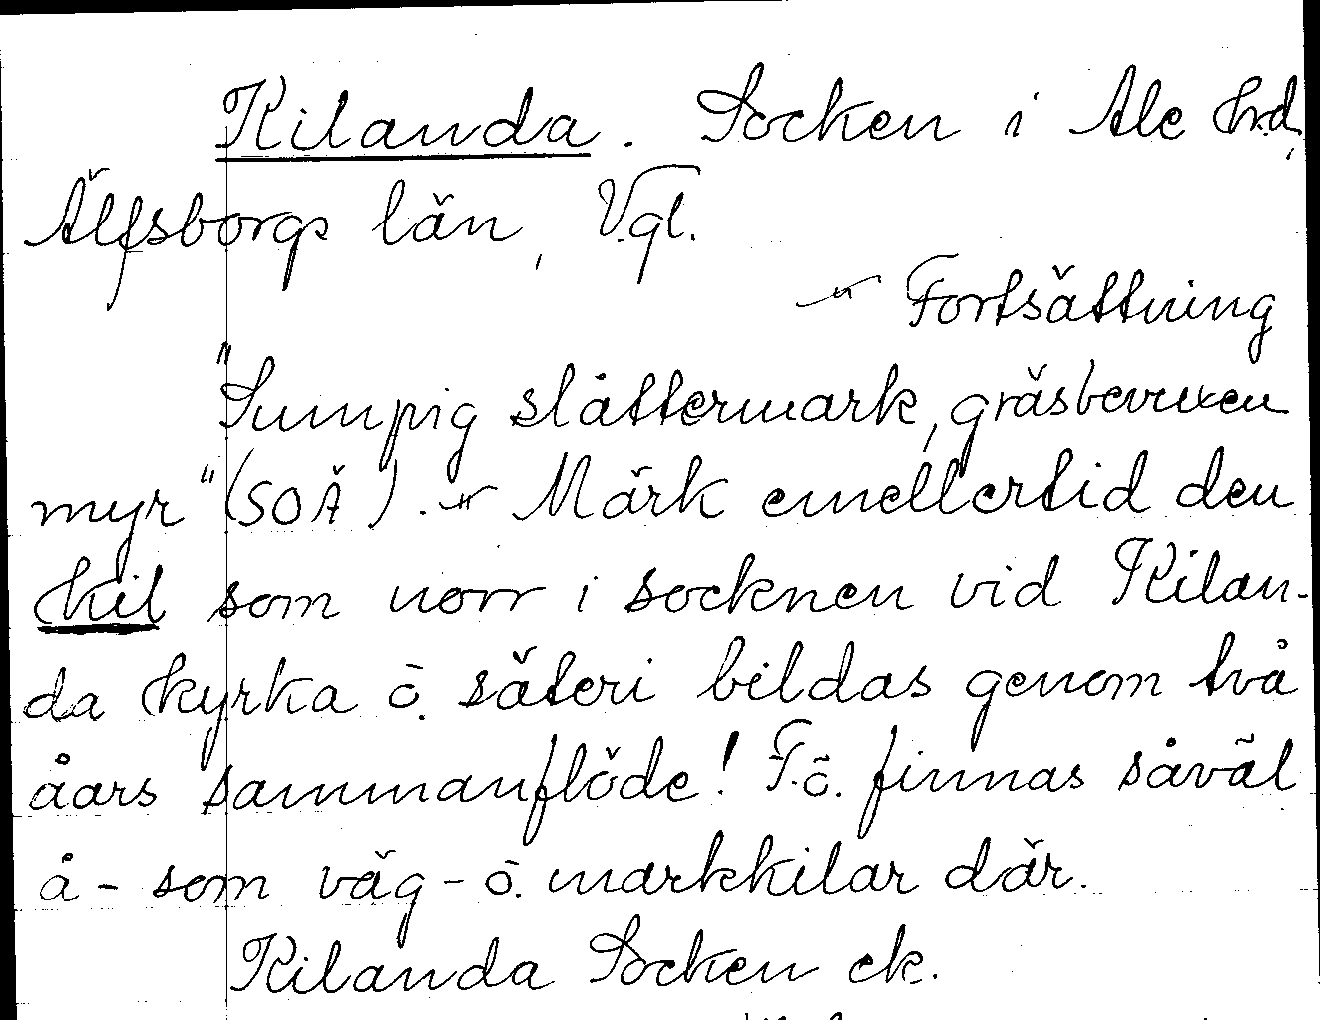 Kilanda. Socken i Ale hrd,
Älfsborgs län, Vgl.
-"- Fortsättning
"Sumpig slåttermark, gräsbevuxen
myr" (SOÄ). -"- Märk emellertid den
kil som norr i socknen vid Kilan-
da kyrka o. säteri bildas genom två
åars sammanflöde! F.ö. finnas såväl
å- som väg- o. markkilar där.
Kilanda Socken ek.